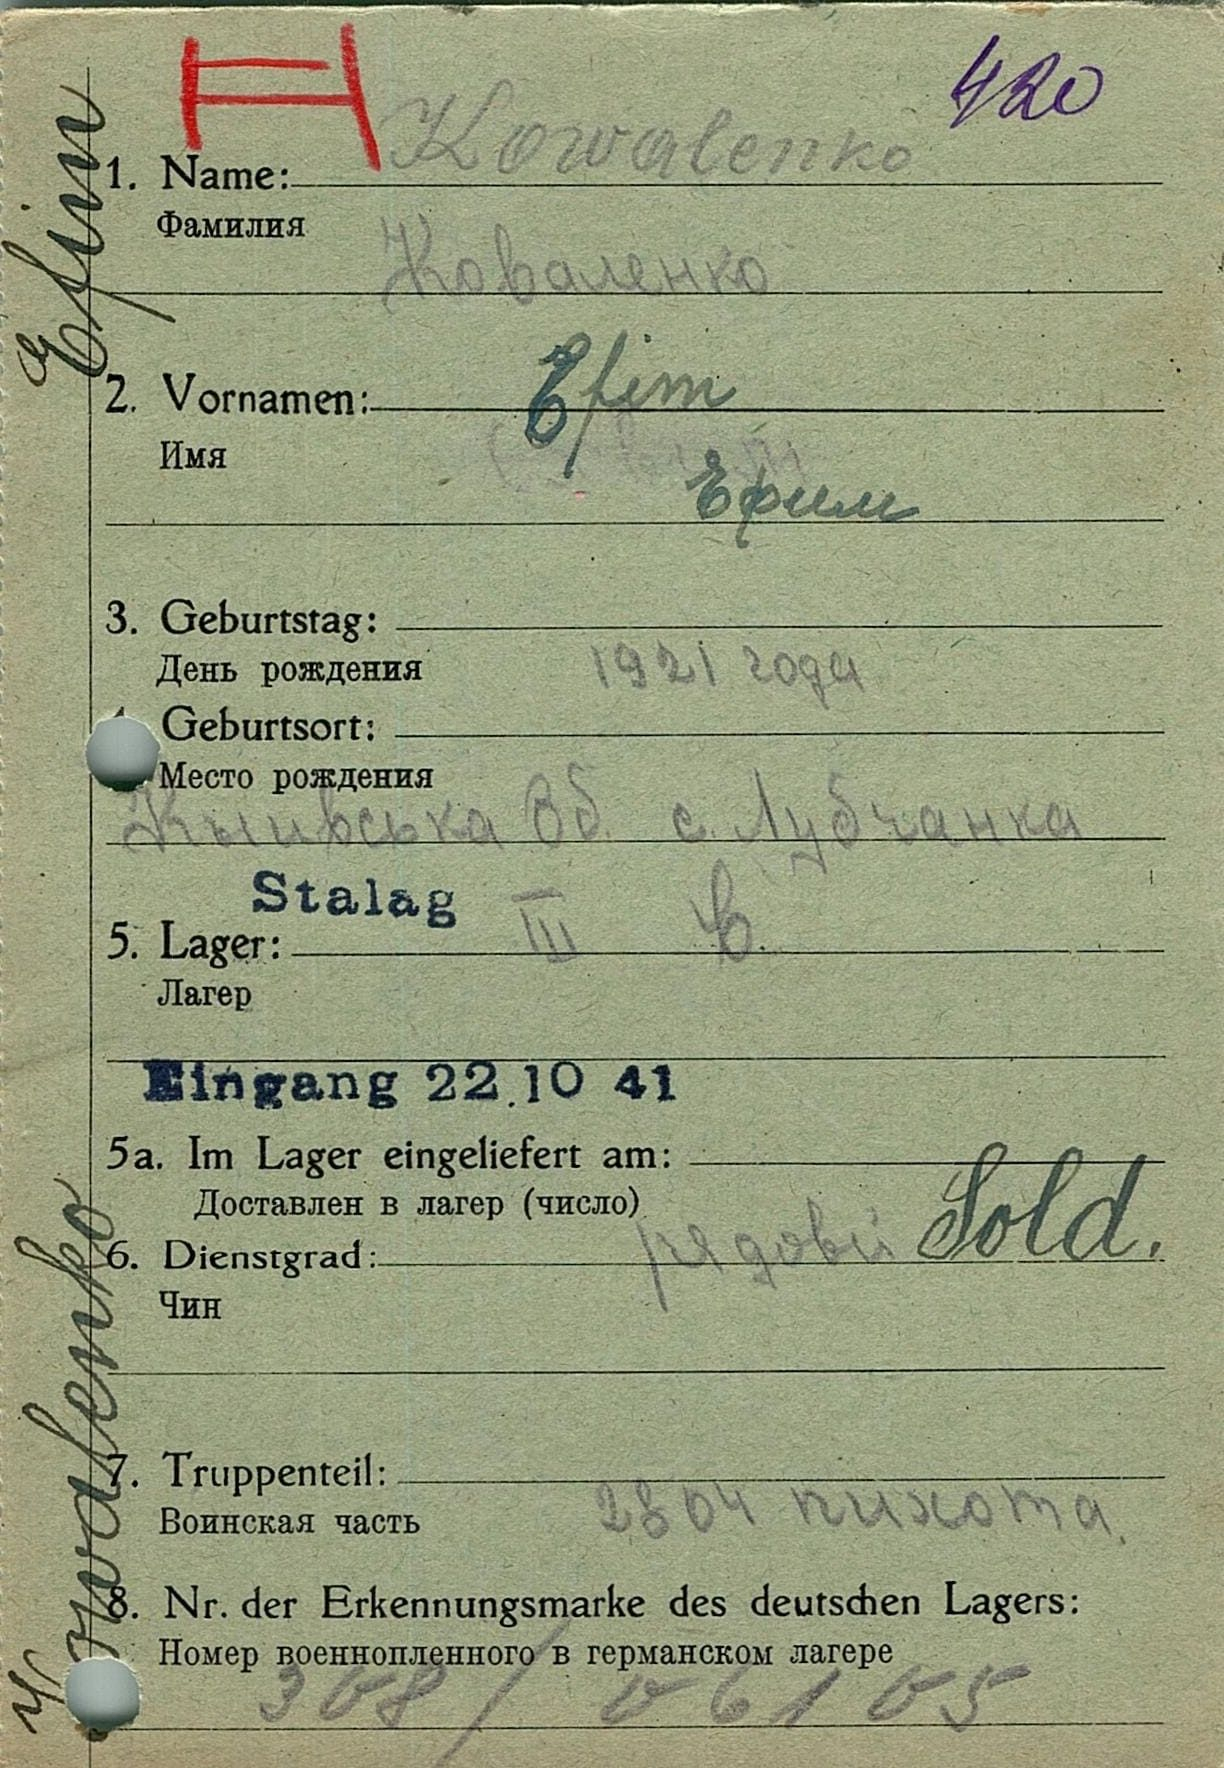 420
Kowalenko
1. Name:
Фамилия
Коваленко
2. Vornamen: Efim
Имя
Ефим
3. Geburtstag:
День рождения 1921 года
Geburtsort:
Место рождения
Кыивська Об. с. Лубчанка
Stalag III B.
5. Lager:
Лагер
Eingang 22.10 41
5a. Im Lager eingeliefert am:
Доставлен в лагер (число)
6. Dienstgrad: рядовий Sold.
Чин
7. Truppenteil:
Воинская часть пихота.
8. Nr. der Erkennungsmarke des deutschen Lagers:
Номер военнопленного в германском лагере
Kowalenko Efim